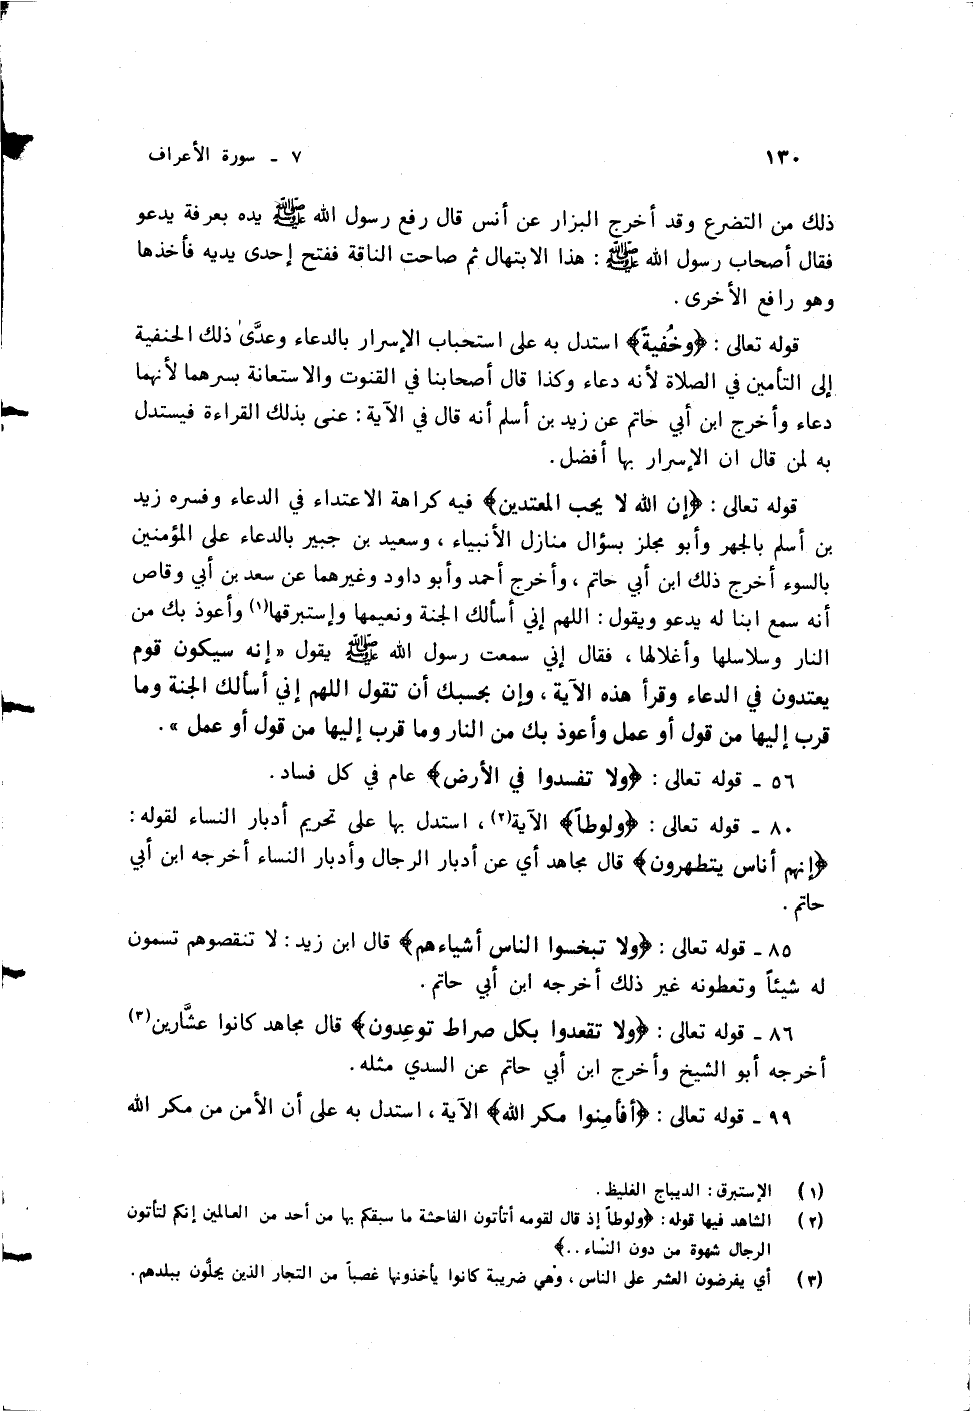 ١٣٠
٧ - سورة الأعراف
ذلك من التضرع وقد أخرج البزار عن أنس قال رفع رسول الله ﷺ يده بعرفة يدعو
فقال أصحاب رسول الله ﷺ : هذا الابتهال ثم صاحت الناقة ففتح إحدى يديه فأخذها
وهو رافع الأخرى .
قوله تعالى : ﴿وخُفيةً﴾ استدل به على استحباب الإسرار بالدعاء وعدَّى ذلك الحنفية
إلى التأمين في الصلاة لأنه دعاء وكذا قال أصحابنا في القنوت والاستعانة بسرهما لأنهما
دعاء وأخرج ابن أبي حاتم عن زيد بن أسلم أنه قال في الآية : عنى بذلك القراءة فيستدل
به لمن قال ان الإسرار بها أفضل .
قوله تعالى : ﴿إن الله لا يحب المعتدين﴾ فيه كراهة الاعتداء في الدعاء وفسره زيد
بن أسلم بالجهر وأبو مجلز بسؤال منازل الأنبياء ، وسعيد بن جبير بالدعاء على المؤمنين
بالسوء أخرج ذلك ابن أبي حاتم ، وأخرج أحمد وأبو داود وغيرهما عن سعد بن أبي وقاص
أنه سمع ابنا له يدعو ويقول : اللهم إني أسألك الجنة ونعيمها وإستبرقها(١) وأعوذ بك من
النار وسلاسلها وأغلالها ، فقال إني سمعت رسول الله ﷺ يقول « إنه سيكون قوم
يعتدون في الدعاء وقرأ هذه الآية ، وإن بحسبك أن تقول اللهم إني أسألك الجنة وما
قرب إليها من قول أو عمل وأعوذ بك من النار وما قرب إليها من قول أو عمل » .
٥٦ - قوله تعالى : ﴿ولا تفسدوا في الأرض﴾ عام في كل فساد .
٨٠ - قوله تعالى : ﴿ولوطاً﴾ الآية(٢) ، استدل بها على تحريم أدبار النساء لقوله :
﴿إنهم أناس يتطهرون﴾ قال مجاهد أي عن أدبار الرجال وأدبار النساء أخرجه ابن أبي
حاتم .
٨٥ - قوله تعالى : ﴿ولا تبخسوا الناس أشياءهم﴾ قال ابن زيد : لا تنقصوهم تسمون
له شيئاً وتعطونه غير ذلك أخرجه ابن أبي حاتم .
٨٦ - قوله تعالى : ﴿ولا تقعدوا بكل صراط توعِدون﴾ قال مجاهد كانوا عشَّارين(٣)
أخرجه أبو الشيخ وأخرج ابن أبي حاتم عن السدي مثله .
٩٩ - قوله تعالى : ﴿أفأمِنوا مكر الله﴾ الآية ، استدل به على أن الأمن من مكر الله
(١) الإستبرق : الديباج الغليظ .
(٢) الشاهد فيها قوله : ﴿ولوطاً إذ قال لقومه أتأتون الفاحشة ما سبقكم بها من أحد من العالمين إنكم لتأتون
الرجال شهوة من دون النساء . . ﴾
(٣) أي يفرضون العشر على الناس ، وهي ضريبة كانوا يأخذونها غصباً من التجار الذين يحلُّون ببلدهم .